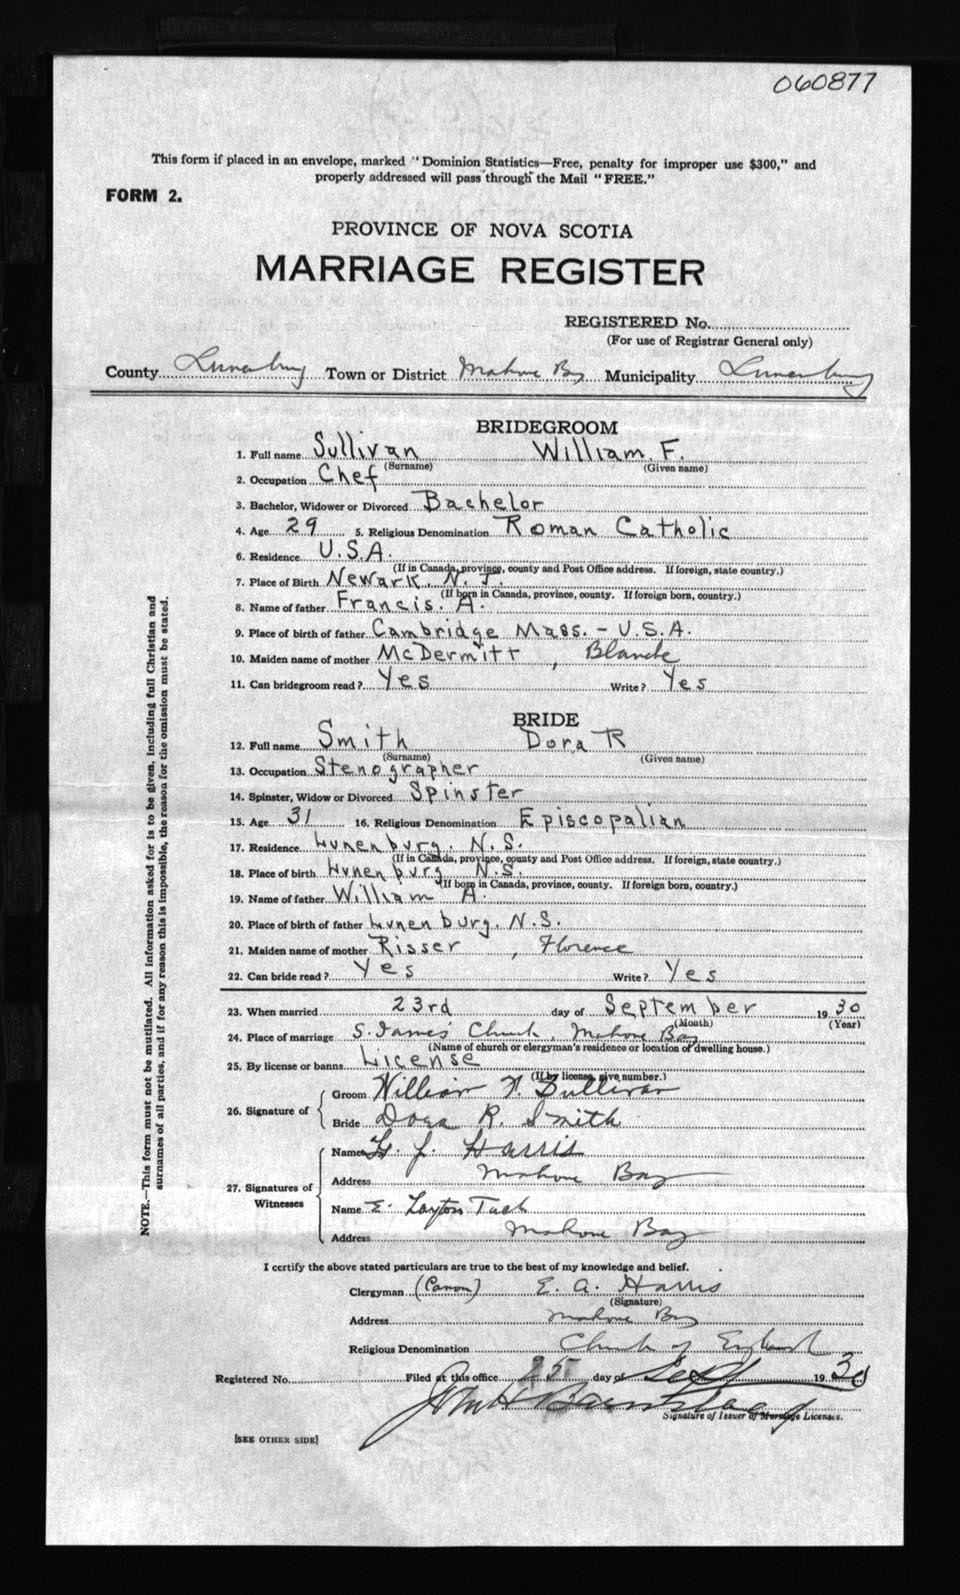 060877
This form if placed in an envelope, marked "Dominion Statistics—Free, penalty for improper use $300," and
properly addressed will pass through the Mail "FREE."
FORM 2.
PROVINCE OF NOVA SCOTIA
MARRIAGE REGISTER
REGISTERED No.
(For use of Registrar General only)
County Lunenburg Town or District Mahone Bay Municipality Lunenburg
BRIDEGROOM
1. Full name Sullivan William F.
(Surname) (Given name)
2. Occupation Chef
3. Bachelor, Widower or Divorced Bachelor
4. Age 29 5. Religious Denomination Roman Catholic
6. Residence U.S.A.
(If in Canada, province, county and Post Office address. If foreign, state country.)
7. Place of Birth Newark, N.J.
(If born in Canada, province, county. If foreign born, country.)
8. Name of father Francis. A.
9. Place of birth of father Cambridge Mass. - U.S.A.
10. Maiden name of mother McDermitt, Blanche
11. Can bridegroom read? Yes Write? Yes
BRIDE
12. Full name Smith Dora R
(Surname) (Given name)
13. Occupation Stenographer
14. Spinster, Widow or Divorced Spinster
15. Age 31 16. Religious Denomination Episcopalian
17. Residence Lunenburg, N.S.
(If in Canada, province, county and Post Office address. If foreign, state country.)
18. Place of birth Lunenburg N.S.
(If born in Canada, province, county. If foreign born, country.)
19. Name of father William A.
20. Place of birth of father Lunenburg, N.S.
21. Maiden name of mother Risser, Florence
22. Can bride read? Yes Write? Yes
23. When married 23rd day of September 1930
(Month) (Year)
24. Place of marriage S. James' Church, Mahone Bay
(Name of church or clergyman's residence or location of dwelling house.)
25. By license or banns License
(If by license, give number.)
26. Signature of
Groom William Sullivan
Bride Dora R. Smith
27. Signatures of Witnesses
Name J. Harris
Address Mahone Bay
Name E. Layton
Address Mahone Bay
I certify the above stated particulars are true to the best of my knowledge and belief.
Clergyman (Canon) E. A. Harris
(Signature)
Address Mahone Bay
Religious Denomination Church of England
Registered No. Filed at this office 25 day of Sept 1930
John H
Signature of Issuer of Marriage Licenses.
[SEE OTHER SIDE]
NOTE.—This form must not be mutilated. All information asked for is to be given, including full Christian and
surnames of all parties, and if for any reason this is impossible, the reason for the omission must be stated.